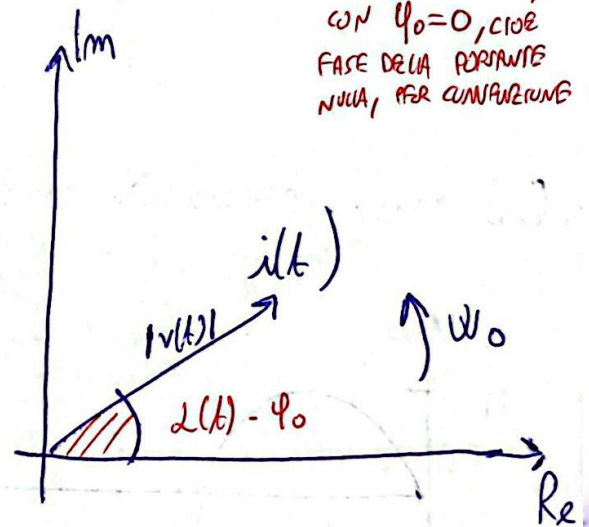 CON φ₀=0, CIOÈ
FASE DELLA PORTANTE
NULLA, PER CONVENZIONE
Im
i(t)
|v(t)|
ω₀
α(t) - φ₀
Re